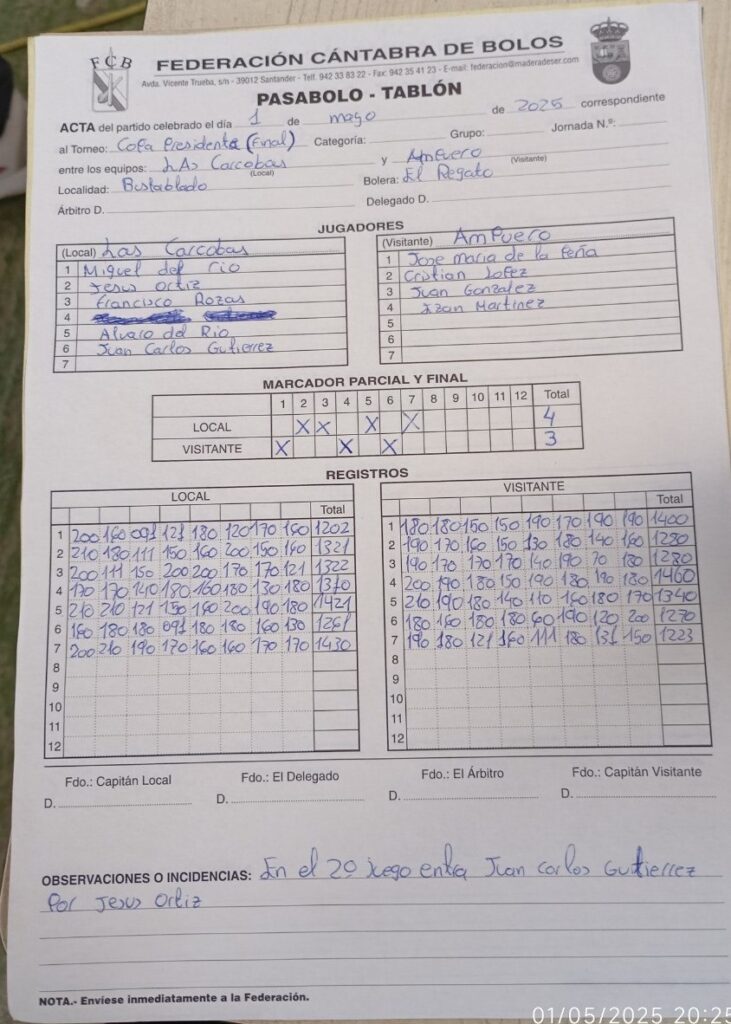 FCB
FEDERACIÓN CÁNTABRA DE BOLOS
Avda. Vicente Trueba, s/n - 39012 Santander - Telf. 942 33 83 22 - Fax: 942 35 41 23 - E-mail: federacion@maderadeser.com
PASABOLO - TABLÓN
ACTA del partido celebrado el día 1 de mayo de 2025 correspondiente
al Torneo: Copa Presidente (Final) Categoría: Grupo: Jornada N.º:
entre los equipos: LAs Carcobas y Ampuero
(Local) (Visitante)
Localidad: Bustablado Bolera: El Regato
Árbitro D. Delegado D.
JUGADORES
(Local) Las Carcobas (Visitante) Ampuero
1 Miguel del rio 1 Jose maria de la Peña
2 Jesus ortiz 2 Cristian Lopez
3 Francisco Rozas 3 Juan Gonzalez
4 4 Izan Martinez
5 Alvaro del Rio 5
6 Juan Carlos Gutierrez 6
7 7
MARCADOR PARCIAL Y FINAL
1 2 3 4 5 6 7 8 9 10 11 12 Total
LOCAL X X X X 4
VISITANTE X X X 3
REGISTROS
LOCAL VISITANTE
Total Total
1 200 160 091 121 180 120 170 160 1202 1 180 180 150 150 190 170 190 190 1400
2 210 180 111 150 160 200 150 160 1321 2 190 170 160 150 130 180 140 160 1280
3 200 111 150 200 200 170 170 121 1322 3 190 170 170 170 140 190 70 180 1280
4 170 170 140 180 160 180 130 180 1310 4 200 190 180 150 190 180 190 180 1460
5 210 210 121 150 160 200 190 180 1421 5 210 190 180 140 110 160 180 170 1340
6 160 180 180 091 180 180 160 130 1261 6 180 160 180 180 60 190 120 200 1270
7 200 210 190 170 160 160 170 170 1430 7 190 180 121 160 111 180 131 150 1223
8 8
9 9
10 10
11 11
12 12
Fdo.: Capitán Local Fdo.: El Delegado Fdo.: El Árbitro Fdo.: Capitán Visitante
D. D. D. D.
OBSERVACIONES O INCIDENCIAS: En el 2º juego entra Juan Carlos Gutierrez
Por Jesus Ortiz
NOTA.- Envíese inmediatamente a la Federación.
01/05/2025 20:25